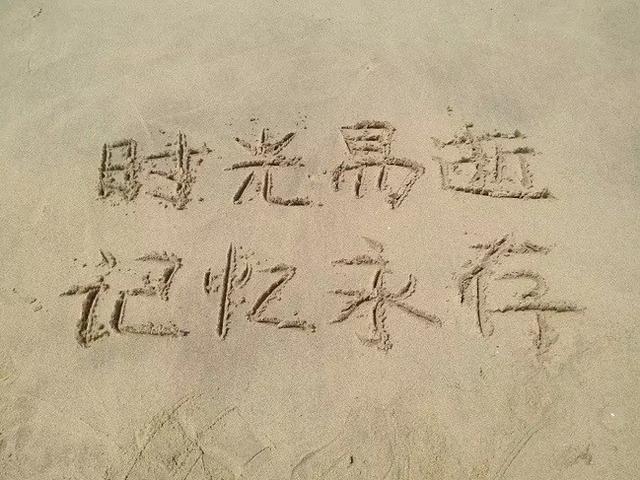 时光易逝
记忆永存